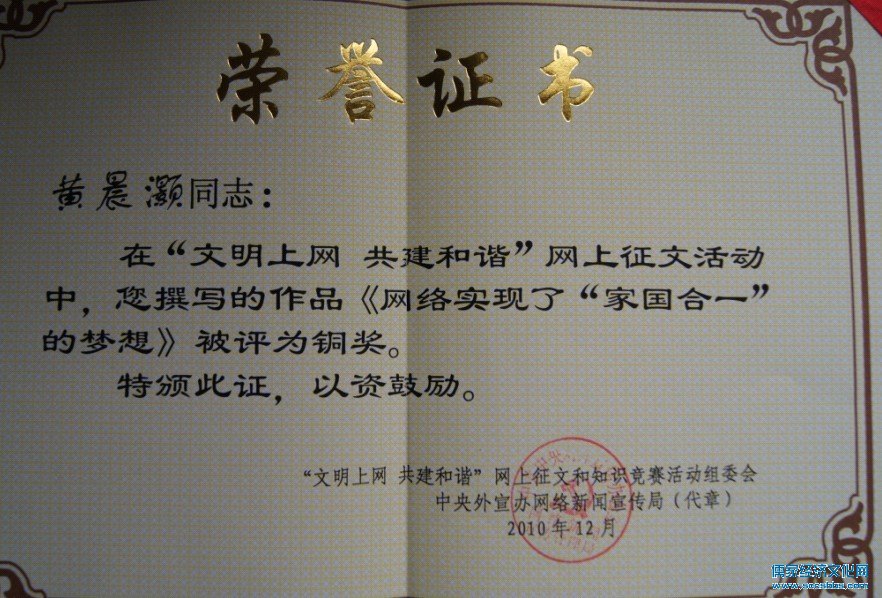 荣誉证书
黄晨灏同志：
在“文明上网 共建和谐”网上征文活动
中，您撰写的作品《网络实现了“家国合一”
的梦想》被评为铜奖。
特颁此证，以资鼓励。
“文明上网 共建和谐”网上征文和知识竞赛活动组委会
中央外宣办网络新闻宣传局（代章）
2010年12月
儒家经济文化网